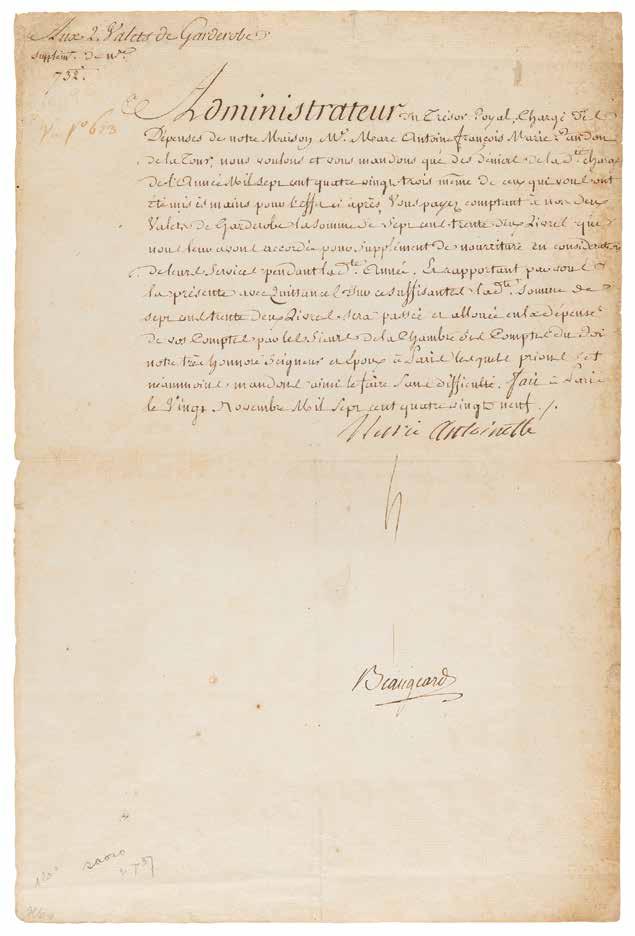 Aux 2. Valets de Garderobe
supplem.t de n.re
732.#
V. f.o 613
Administrateur du Trésor Royal, Chargé des
Dépenses de notre Maison M.r Marc Antoine François Marie Randon
de la Tour, nous voulons et vous mandons que des deniers de la d.te charge
de l'Année Mil sept cent quatre vingt trois même de ceux qui vous ont
été mis ès mains pour l'effet ci après, Vous payez comptant à nos deux
Valets de Garderobe la somme de Sept cent trente deux Livres que
nous leur avons accordée pour supplément de nourriture en considération
de leurs Services pendant la d.te Année. Et rapportant par vous
la présente avec Quittances sur ce suffisantes la d.te somme de
sept cent trente deux Livres sera passée et allouée en la dépense
de vos Comptes par les Sieurs de la Chambre des Comptes du Roi
notre très honnoré Seigneur et Epoux à Paris lesquels prions et
néanmoins mandons ainsi le faire sans difficulté. Fait à Paris
le Vingt Novembre Mil Sept cent quatre vingt neuf ./.
Marie Antoinette
Beaugeard